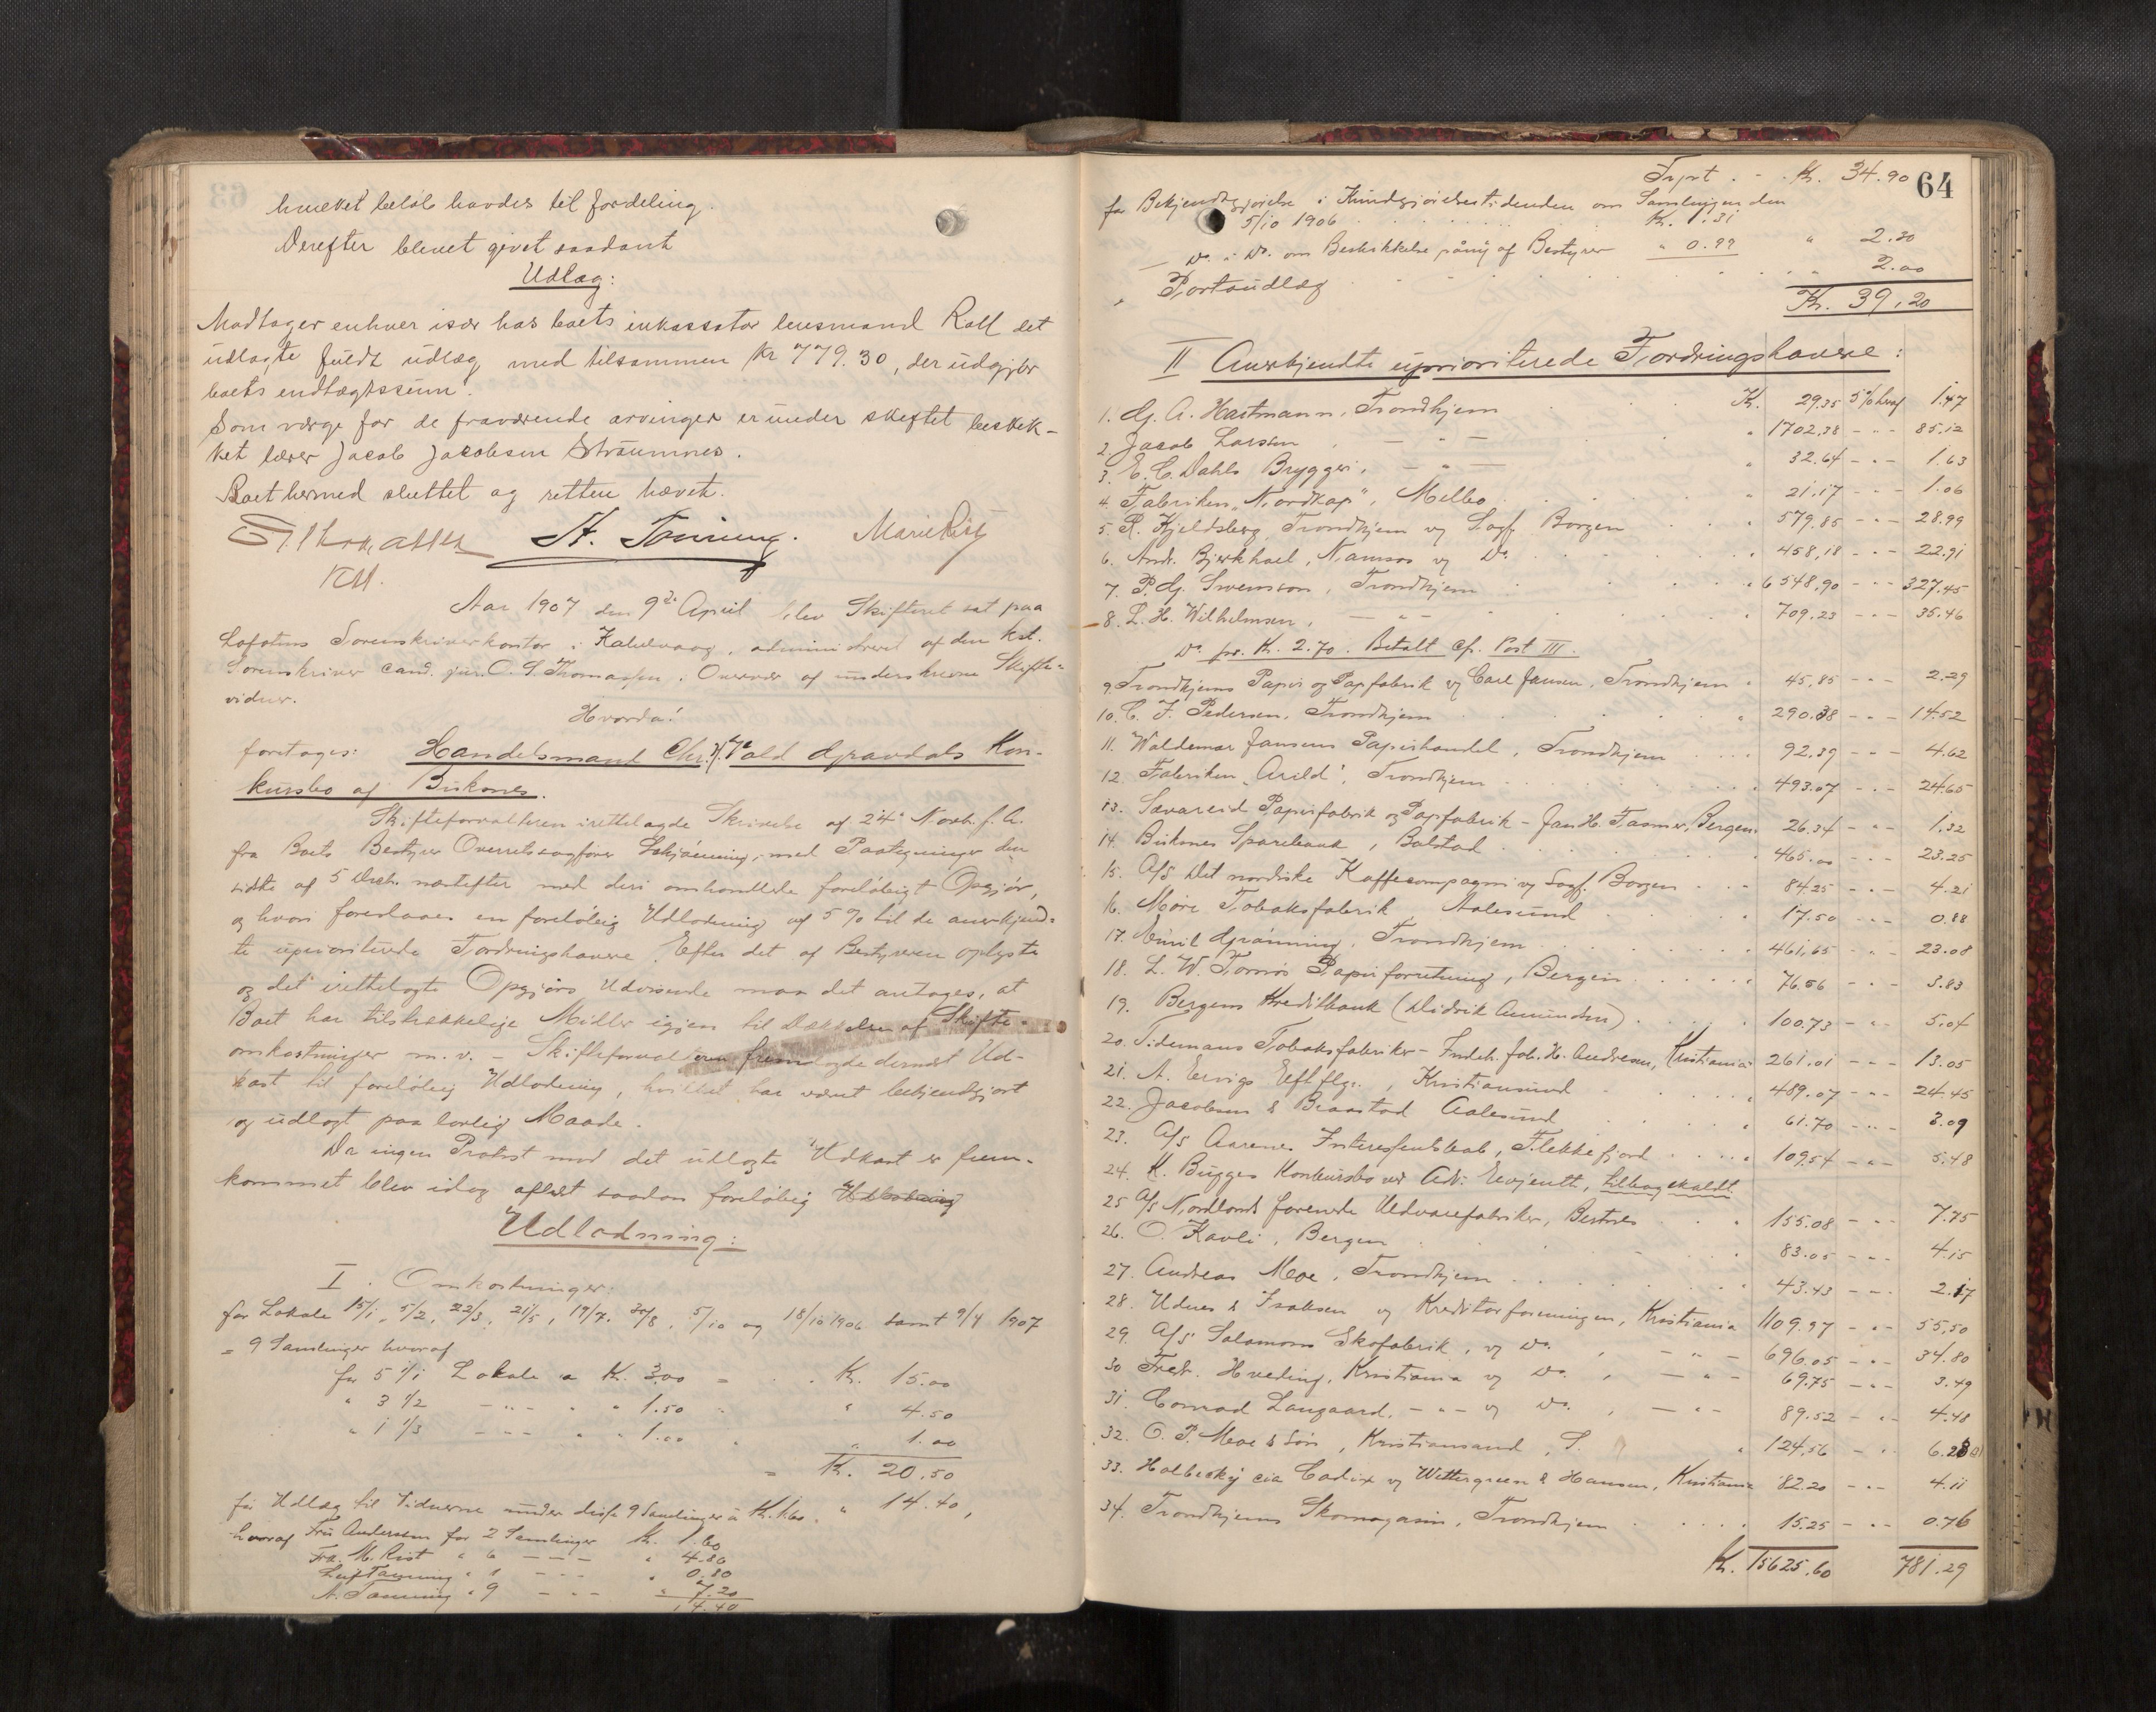 hvilket beløb havdes til fordeling.
Derefter blevet givet saadant
Udlæg:
Modtager enhver især hos boets inkassator lensmand Roll det
udlagte fuldt udlæg med tilsammen Kr 779.30, der udgjør
boets endtægtssum.
Som værge for de fraværende arvinger er under skiftet beskik-
ket lærer Jacob Jacobsen Straumnes.
Boet hermed sluttet og retten hævet.
O. S. Thomassen A. Tønning. Marie Rist
Kst.
Aar 1907 den 9de April blev Skifteret sat paa
Lofotens Sorenskriverkontor i Kabelvaag, administreret af den kst.
Sorenskriver cand. jur. O. S. Thomassen i Overvær af underskrevne Skifte-
vidner.
Hvorda!
foretoges: Handelsmand Chr. Vold Gravdals Kon-
kursbo af Buksnes.
Skifteforvalteren irettelagde Skrivelse af 24de Novb. f. A.
fra Boets Bestyrer Overretssagfører Schjønning, med Paategninger den
sidste af 5 Decb. næstefter med deri omhandlede foreløbigt Opgjør,
og hvori foreslaaes en foreløbig Udlodning af 5 % til de anerkjend-
te uprioriterede Fordringshavere. Efter det af Bestyreren oplyste
og det irettelagte Opgjørs Udvisende maa det antages, at
Boet har tilstrækkelige Midler igjen til Dækkelse af Skifte-
omkostninger m. v. – Skifteforvalteren fremlagde dernæst Ud-
kast til foreløbig Udlodning, hvilket har været bekjendtgjort
og udlagt paa lovlig Maade.
Da ingen Protest mod det udlagte Udkast er frem-
kommet blev idag afløst saadan foreløbig Udlodning
Udlodning:
I. Omkostninger:
for Lokale 15/1, 5/2, 22/3, 21/5, 17/7, 30/8, 5/10 og 18/10 1906 samt 9/4 1907
= 9 Samlinger hvoraf
for 5 1/1 Lokale a Kr. 3.00 = . . Kr. 15.00
" 3 1/2 – " – " " 1.50 " 4.50
" 1 1/3 – – – " " 1.00 " 1.00
= Kr. 20.50
for Udlæg til Vidnerne under disse 9 Samlinger à Kr. 1.60 . " 14.40,
hvoraf Fru Andersen for 2 Samlinger Kr. 1.60
Frk. M. Rist " 6 – – – " 4.80
Leif Tønning " 1 – – – " 0.80
A. Tønning " 9 – " – " 7.20
14.40
64
Trprt . - . Kr. 34.90
for Bekjendtgjørelse i Kundgjørelsestidenden om Samlingen den
5/10 1906 Kr. 1.31
– Do. i Do. om Beskikkelse påny af Bestyrer " 0.99 " 2.30
" Portoudlæg " 2.00
Kr. 39.20
II Anerkjendte uprioriterede Fordringshavere:
1. G. A. Hartmann, Trondhjem Kr. 29.35 5% heraf 1.47
2. Jacob Larssen, – " – " 1702.38 – " – 85.12
3. E. C. Dahls Bryggeri, – " – " 32.64 – " – 1.63
4. Fabriken "Nordkap", Melbo " 21.17 – " – 1.06
5. R. Kjeldsberg, Trondhjem og Sagf. Borgen " 579.85 – " – 28.99
6. Andr. Bjerkhoel, Namsos og Do. " 458.18 – " – 22.91
7. P. G. Svensson, Trondhjem " 6548.90 – " – 327.45
8. L. H. Wilhelmsen, – " – " 709.23 – " – 35.46
Do. pr. Kr. 2.70. Betalt cfr. Post III.
9. Trondhjems Papir og Papfabrik og Carl Jansen, Trondhjem " 45.85 – " – 2.29
10. C. F. Pedersen, Trondhjem " 290.38 – " – 14.52
11. Waldemar Jansens Papirhandel, Trondhjem 92.39 – " – 4.62
12. Fabriken "Arild", Trondhjem " 493.07 – " – 24.65
13. Sævareid Papirfabrik og Papfabrik – Jan H. Fasmer, Bergen 26.34 – " – 1.32
14. Buksnes Sparebank, Balstad 465.00 – " – 23.25
15. A/S Det nordiske Kaffecompagni og Sagf. Borgen 84.25 – " – 4.21
16. Møre Tobaksfabrik, Aalesund " 17.50 – " – 0.88
17. Emil Grønning, Trondhjem " 461.65 – " – 23.08
18. L. W. Tornøs Papirforretning, Bergen " 76.56 – " – 3.83
19. Bergens Kreditbank (Didrik Amundsen) " 100.73 – " – 5.04
20. Tidemans Tobaksfabriker – Indeh. Joh. H. Andresen, Kristiania 261.01 – " – 13.05
21. A. Ervigs Eftflgr., Kristiansund " 489.07 – " – 24.45
22. Jacobsen & Braastad Aalesund " 61.70 – " – 3.09
23. A/S Aarenes Interessentskab, Flekkefjord " 109.54 – " – 5.48
24. K. Bugges Konkursbo ved Adv. Evjenth, tilbagekaldt.
25. A/S Nordlands forenede Uldvarefabriker, Bestnes " 155.08 – " – 7.75
26. O. Kavli, Bergen " 83.05 – " – 4.15
27. Andreas Moe, Trondhjem " 43.43 – " – 2.17
28. Udnes & Isaksen og Kreditorforeningen, Kristiania 1109.97 – " – 55.50
29. A/S Salomons Skofabrik, og Do. , – " – 696.05 – " – 34.80
30. Fredr. Hveding, Kristiania og Do. , – " – 69.75 – " – 3.49
31. Conrad Langaard, – " – og Do. , – " – 89.52 – " – 4.48
32. O. P. Moe & Søn, Kristiansand, S. " 124.56 – " – 6.23
33. Holbecky cia Cadix og Wettergreen & Hansen, Kristiania 82.20 – " – 4.11
34. Trondhjems Skomagasin, Trondhjem 15.25 – " – 0.76
Kr. 15625.60 781.29